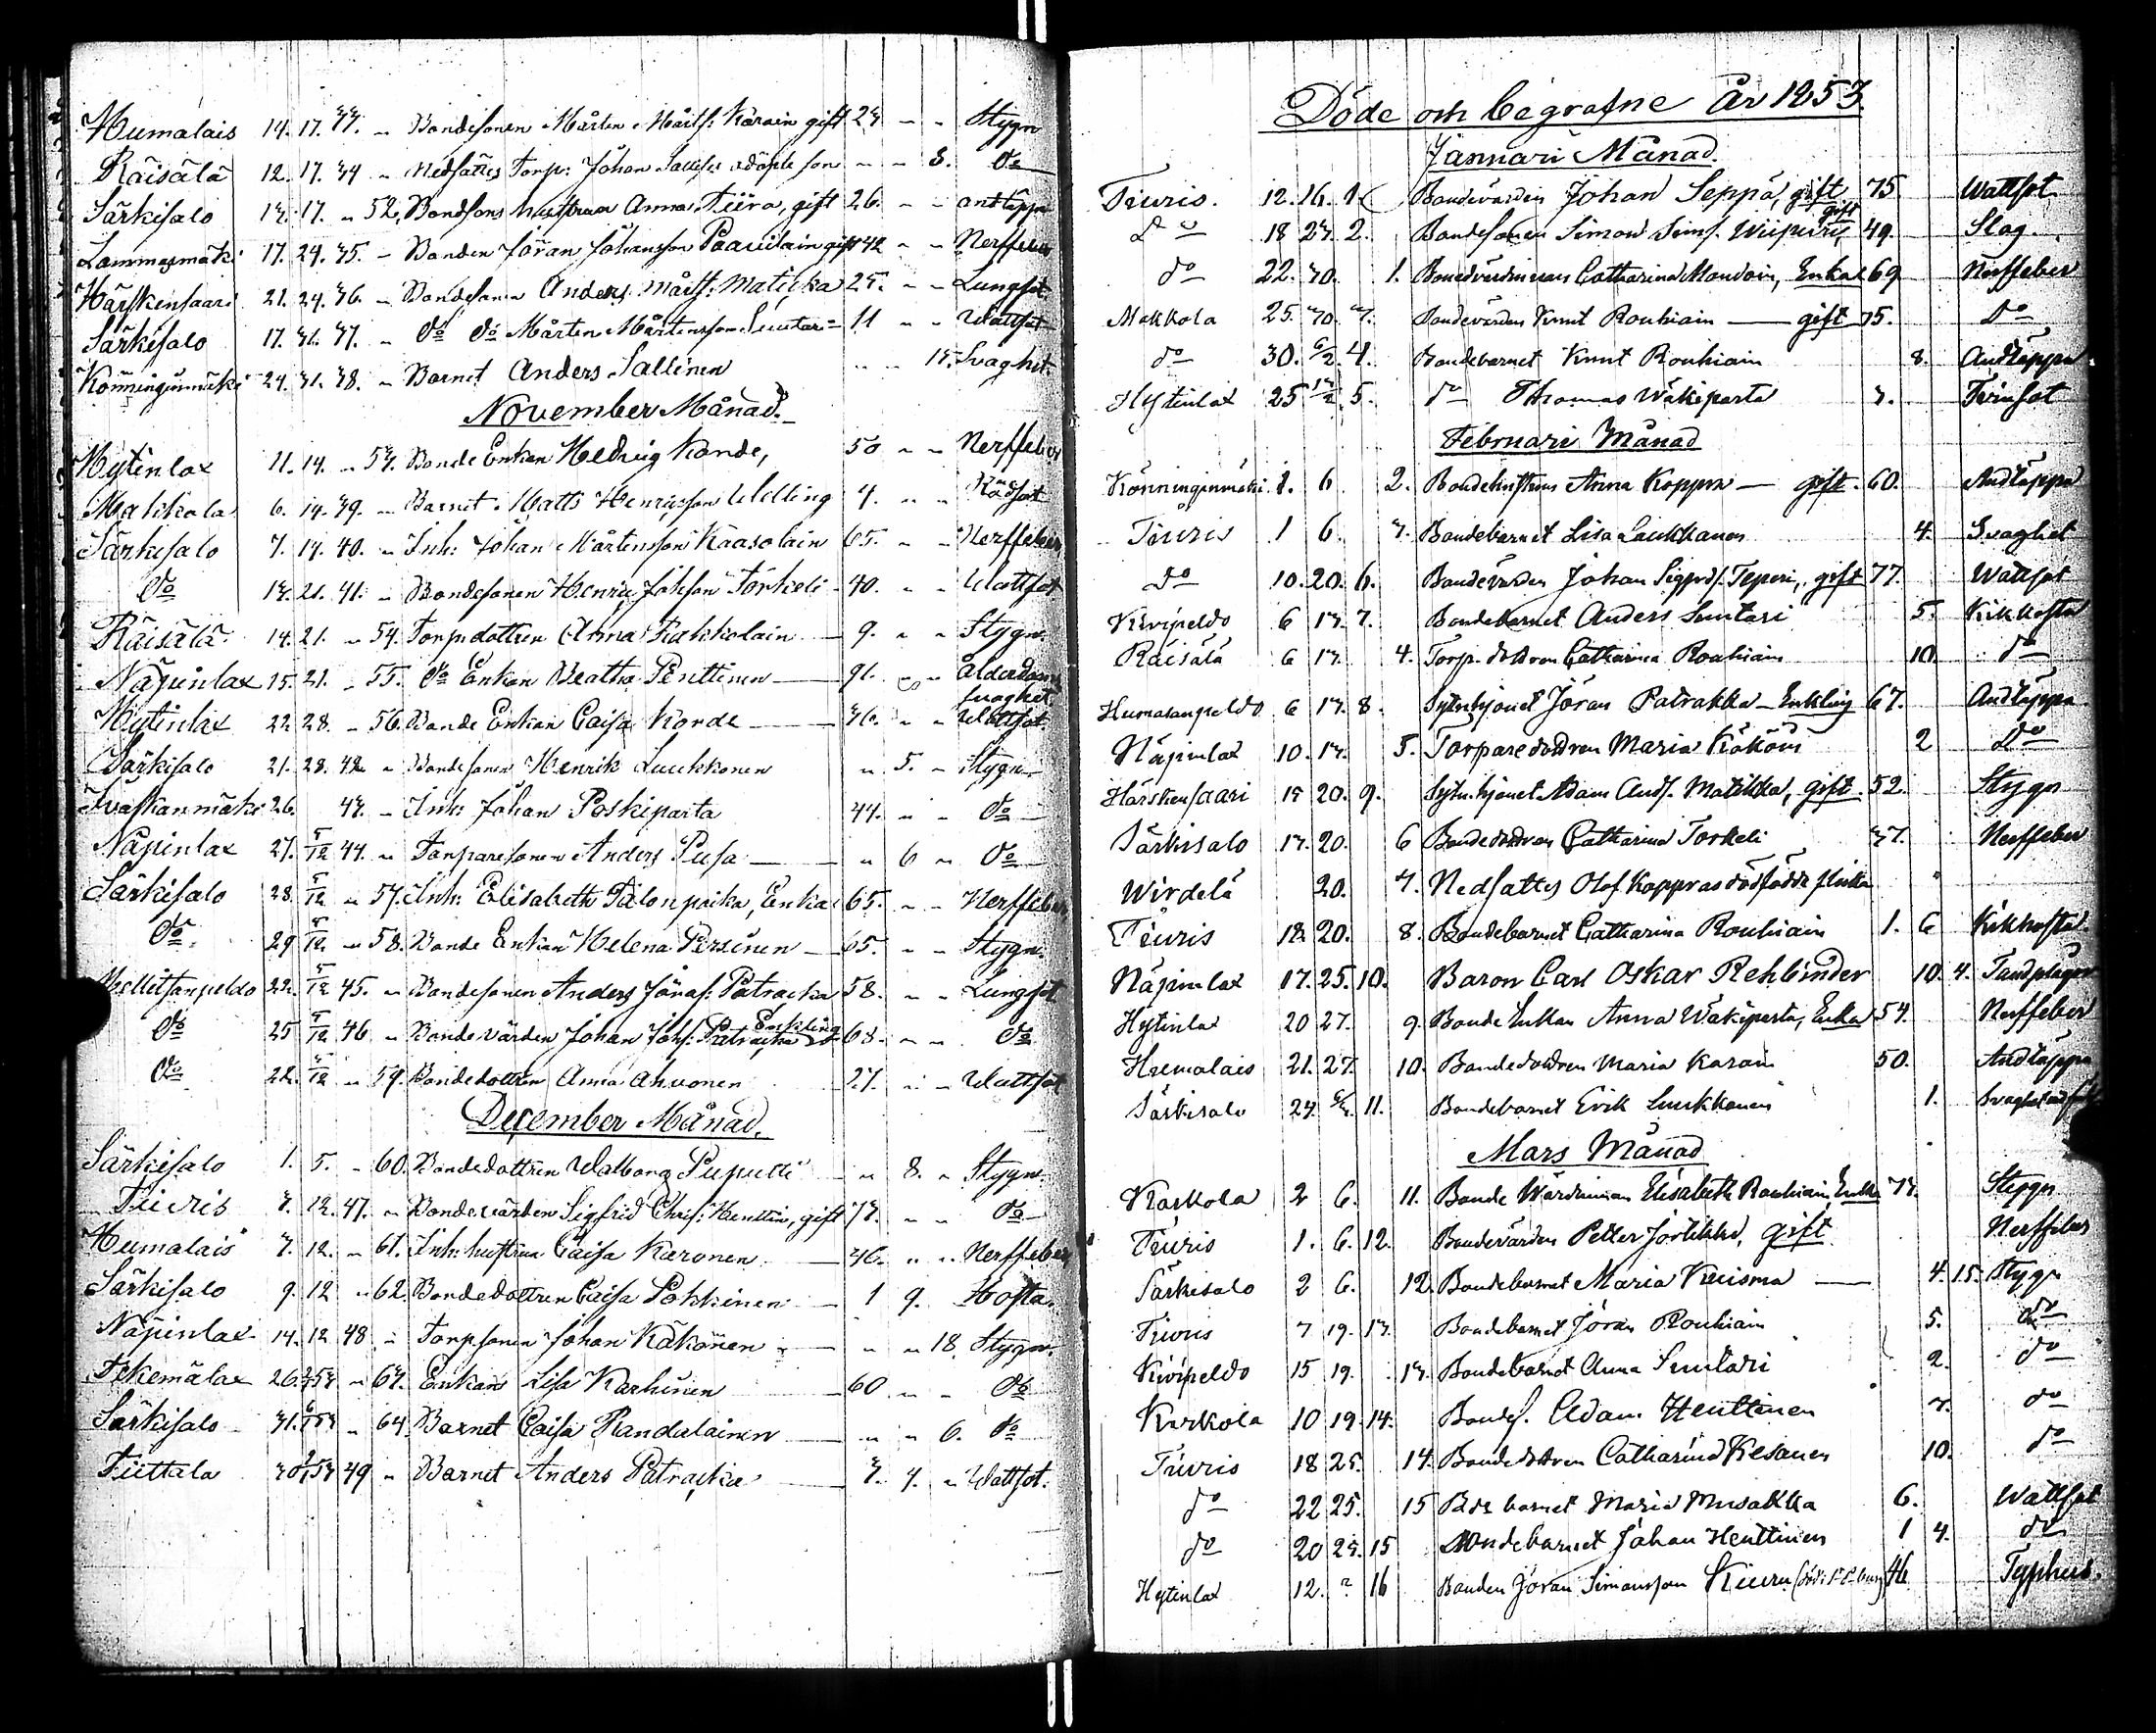 Humalais 14. 17. 33. " Bondesonen Mårten Mårts: Karain gift 23 " " Stygn
Räisälä 12. 17. 34 " Nedsättes Torp: Johan Salls: son " " 8. do
Särkisalo 13. 17. " 52. Bondsons hustrun Anna Tiira, gift 26. " " andtäppa
Lammasmäki 17. 24. 35. " Bonden Jöran Johansson Paavilain gift 42 " " Nerffeber
Härskensaari 21. 24. 36. " Bondesonen Anders Mårts: Matikka 25. " " Lungsot
Särkisalo 17. 31. 37. " do do Mårten Mårtensson Suntari 11 " " Wattsot
Könninginmäki 24. 31. 38. " Barnet Anders Sallinen " " 15. Svaghet
November Månad.
Hytinlax 11. 14. " 53. Bonde Enkan Hedvig Korde, 50 " " Nerffeber
Makkola 6. 14. 39. " Barnet Matts Henricsson Welling 4. " " Rödsot
Särkisalo 7. 14. 40. " Inh: Johan Mårtensson Kaasolain 65. " " Nerffeber
do 13. 21. 41. " Bondesonen Henric Johsson Torkeli 40. " " Wattsot
Räisälä 14. 21. " 54. Torpdottren Anna Rakkolain 9. " " Stygn
Näpinlax 15. 21. " 55. do Enkan Beatha Penttinen 91. " " Ålderdoms svaghet
Hytinlax 22. 28. " 56. Bonde Enkan Caisa Korde 36. " " Wattsot.
Särkisalo 21. 28. 42 " Bondesonen Henrik Luukkonen " 5. " Stygn
Ivaskanmäki 26. 43. " Inh: Johan Poskiparta 44. " " do
Näpinlax 27. 5/12 44. " Torparesonen Anders Pusa " 6 " do
Särkisalo 28. 5/12 " 57. Inh: Elisabeth Talonpoika, Enka 65. " " Nerffeber
do 29 5/12. " 58. Bonde Enkan Helena Persinen 65. " " Stygn.
Hellitsanpeldo 22. 5/12 45. " Bondesonen Anders Jöras: Patracka 58. " " Lungsot
do 25 5/12 46 " Bondevärden Johan Johs: Patracka Enkling 68. " " do
do 22. 5/12 " 59. Bondedottren Anna Ahvonen 27. " " Wattsot
December Månad.
Särkisalo 1. 5. " 60. Bondedottren Walborg Puputti " 8. " Stygn
Tiuris 3. 12. 47. " Bondevärden Sigfrid Chris: Henttin, gift 73. " " do
Humalais 7. 12. " 61. Inh: hustrun Caisa Karonen 46. " " Nerffeber
Särkisalo 9. 12 " 62. Bondedottren Caisa Pohkinen 1 9. Hosta.
Näpinlax 14. 12 48 " Torpsonen Johan Käkönen " " 18. Stygn.
Tekemälax 26. 53 " 63. Enkan Lisa Karhinen 60 " " do
Särkisalo 31. 53 " 64. Barnet Caisa Randulainen " " 6. do
Tiittala 30. 53 49 " Barnet Anders Patracka 3. 4. " Wattsot.
Döde och begrafne År 1853.
Januari Månad.
Tiuris. 12. 16. 1. Bondevärden Johan Seppä, gift 75. Wattsot
do 18 23. 2. Bondesonen Simon Sims. Wiiperi, gift 49. Slag.
do 22. 30. 1. Bondevärdinnan Catharina Mondoin, Enka 69 Nerffeber
Makkola 25. 30. 3. Bondevärden Knut Rouhiain gift 75. do
do 30. 6/2 4. Bondebarnet Knut Rouhiain 8. Andtäppa
Hytinlax 25 13/2 5. do Thomas Wäkiparta 3. Twinsot
Februari Månad
Könninginmäki 1. 6 2. Bondehustrun Anna Koppra gift. 60. Andtäppa
Tiuris 1 6 3. Bondebarnet Lisa Laukkanen 4. Svaghet
do 10. 20. 6. Bondevärden Johan Sigfrds. Teperi, gift 77. Wattsot
Kivipeldo 6 13. 7. Bondebarnet Anders Suntari 5. Kikhosta
Räisälä 6 13. 4. Torp. dottren Catharina Rouhiain 10. do
Humalanpeldo 6 13. 8. Sytnhjonet Jöran Patrakka Enkling 67. Andtäppa
Näpinlax 10. 13. 5. Torparedottren Maria Käköin 2 do
Härskensaari 15 20. 9. Sytn. hjonet Adam Ands. Matikka, gift. 52. Stygn
Särkisalo 13. 20. 6 Bondedottren Catharina Torkeli 37. Nerffeber
Wirdelä 20. 7. Nedsattes Olof Koppras dödfödda flicka "
Tiuris 18. 20. 8. Bondebarnet Catharina Rouhiain 1. 6 Kikhosta.
Näpinlax 17. 25. 10. Baron Carl Oskar Rehbinder 10. 4. Tandplågor
Hytinlax 20 27. 9. Bonde Enkan Anna Wäkiparta, Enka 54. Nerffeber
Humalais 21. 27. 10. Bondedottren Maria Karain 50. Andtäppa
Särkisalo 24. 6/3. 11. Bondebarnet Erik Luukkonen 1. Svaghet
Mars Månad
Kaskola 2 6. 11. Bonde Wärdinnan Elisabeth Rouhiain, Enka 73. Stygn
Tiuris 1. 6. 12. Bondevärden Petter Jortikka, gift Nerffeber
Särkisalo 2 6. 12. Bondebarnet Maria Kuisma 4. 15. Stygn
Tiuris 7 19. 13. Bondebarnet Jöran Rouhiain 5. do
Kivipeldo 15 19. 13. Bondebarnet Anna Suntari 2. do
Karkola 10 19. 14. Bondes. Adam Henttinen 3. do
Tiuris 18 25. 14. Bondedottren Catharina Kesanen 10. do
do 22 25. 15 Bde barnet Maria Musakka 6. Wattsot
do 20 25. 15 Bondebarnet Johan Henttinen 1 4. do
Hytinlax 12. ? 16 Bonden Jöran Simonsson Kiuru 46. Typhus.